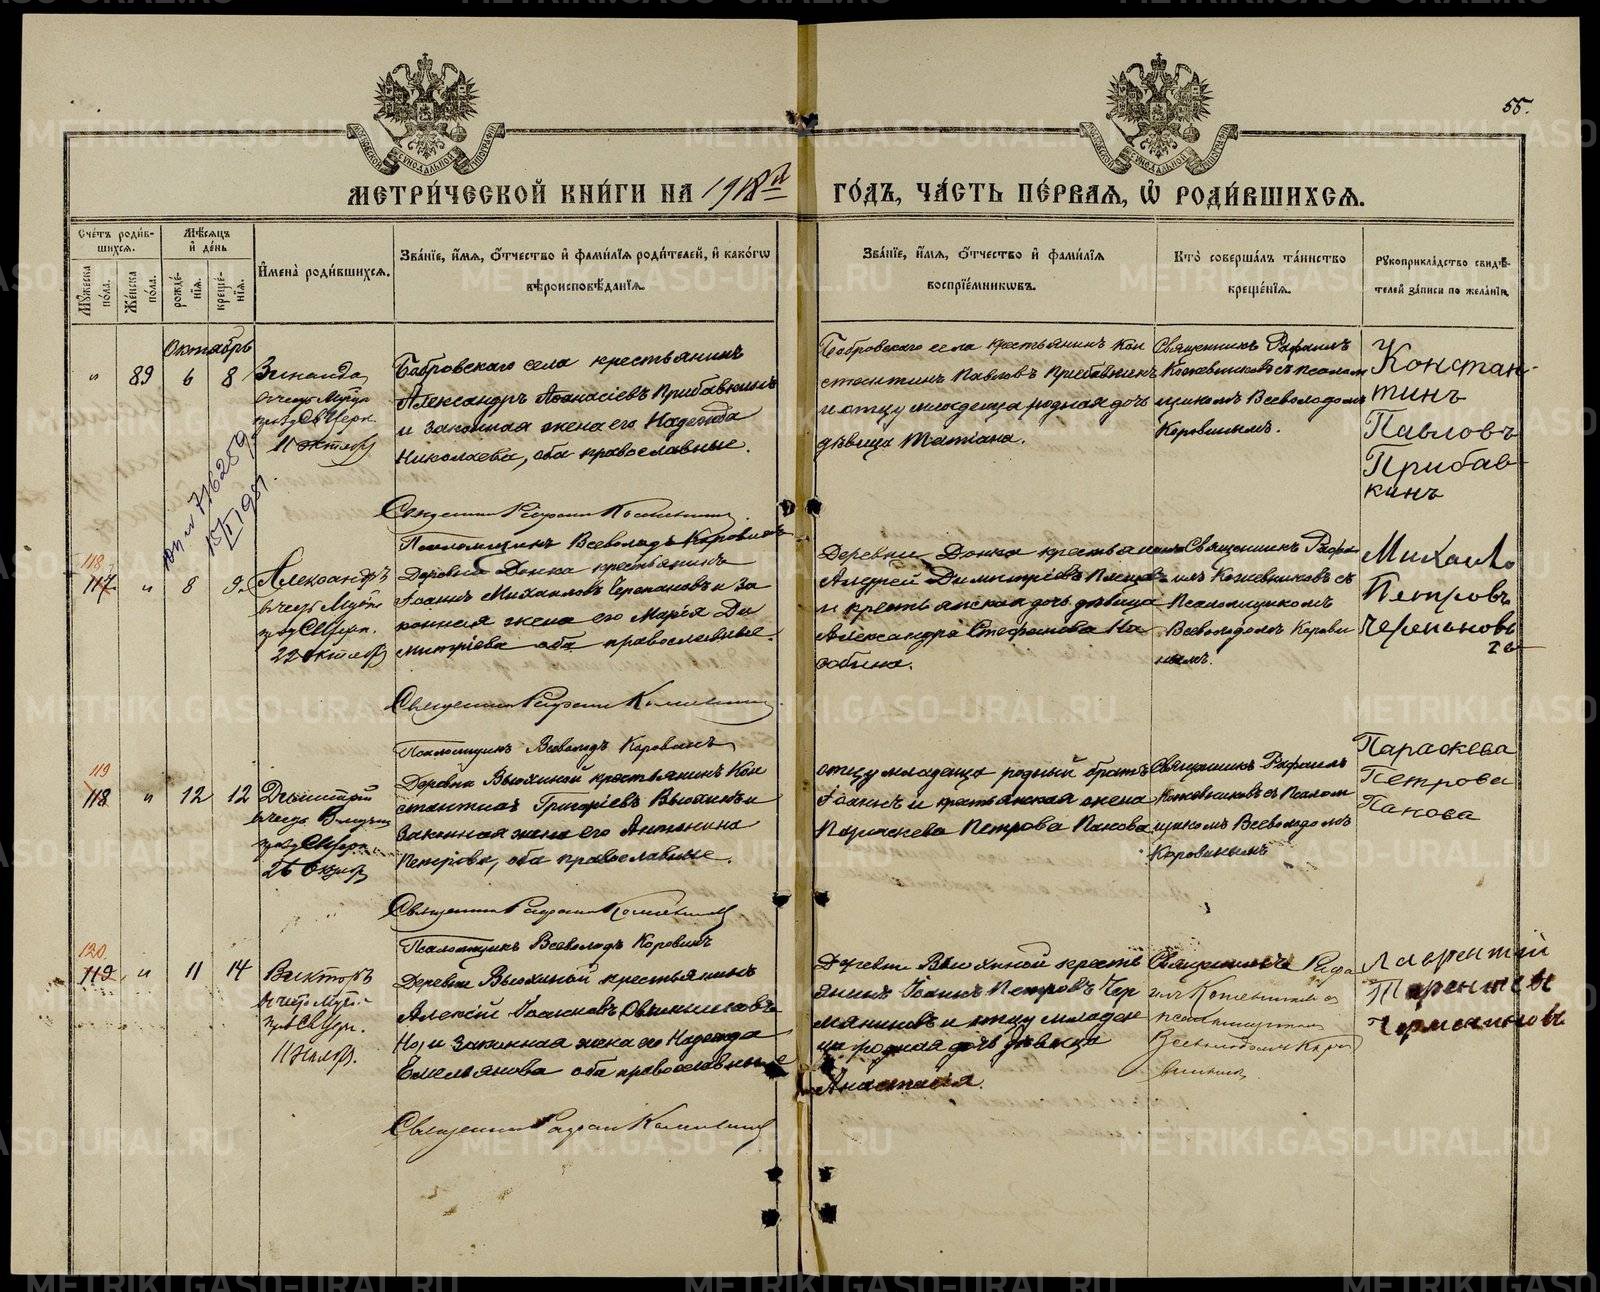 55.
МЕТРИ́ЧЕСКОЙ КНИ́ГИ НА 1918й ГО́ДЪ, ЧА́СТЬ ПЕ́РВАЯ, Ѡ҆ РОДИ́ВШИХСЯ.
Сче́тъ роди́в-
шихся.
Мꙋ́жеска по́ла.
Же́нска по́ла.
Мѣ́сяцъ
и҆ де́нь
рожде́-
нїя.
креще́-
нїя.
И҆мена̀ роди́вшихся.
Зва́нїе, и҆́мя, ѻ҆́тчество и҆ фами́лїя роди́телей, и҆ како́гѡ
вѣроисповѣ́данїя.
Зва́нїе, и҆́мя, ѻ҆́тчество и҆ фами́лїя
воспрїе́мникѡвъ.
Кто̀ соверша́лъ та́инство
креще́нїя.
Рꙋкоприкла́дство свидѣ́-
телей за́писи по жела́нїю.
Октябрь
" 89 6 8
Зинаида
11 октября
Бобровскаго села крестьянинъ
Александръ Аѳанасіевъ Прибавкинъ
и законная жена его Надежда
Николаева, оба православные.
Священникъ Рафаилъ Кожевниковъ
Псаломщикъ Всеволодъ Коровинъ
Бобровскаго села крестьянинъ Кон
стантинъ Павловъ Прибавкинъ
и отцу младенца родная дочь
дѣвица Татіана.
Священникъ Рафаилъ
Кожевниковъ съ псалом
щикомъ Всеволодомъ
Коровинымъ.
Констан-
тинъ
Павловъ
Прибав-
кинъ
118
117 " 8 9
Александръ
22 октября
Деревни Донки крестьянинъ
Іоаннъ Михаиловъ Черепановъ и за
конная жена его Марія Ди
митріева оба православные.
Священникъ Рафаилъ Кожевниковъ
Псаломщикъ Всеволодъ Коровинъ
Деревни Донки крестьянинъ
Андрей Димитріевъ
и крестьянская дочь дѣвица
Александра Стефанова
Священникъ Рафа
илъ Кожевниковъ съ
Псаломщикомъ
Всеволодомъ Корови
нымъ.
Михаило
Петровъ
Черепановъ
119
118 " 12 12
Димитрій
Деревни Вьюхиной крестьянинъ Кон
стантинъ Григоріевъ Вьюхинъ и
законная жена его Антонина
Петрова, оба православные.
Священникъ Рафаилъ Кожевниковъ
Псаломщикъ Всеволодъ Коровинъ
отцу младенца родный братъ
Іоаннъ и крестьянская жена
Параскева Петрова Панова
Священникъ Рафаилъ
Кожевниковъ съ Псалом
щикомъ Всеволодомъ
Коровинымъ
Параскева
Петрова
Панова
120
119 " 11 14
Викторъ
Деревни Вьюхиной крестьянинъ
Алексій Іоанновъ
и законная жена его Надежда
Емельянова оба православные
Священникъ Рафаилъ Кожевниковъ
Деревни Вьюхиной кресть
янинъ Іоаннъ Петровъ Чер
мяниновъ и отцу младен
ца родная дочь дѣвица
Анастасія.
Священникъ Рафа
илъ Кожевниковъ съ
псаломщикомъ
Всеволодомъ Коро
винымъ
Лаврентій
Терентьев
Чермениновъ
METRIKI.GASO-URAL.RU